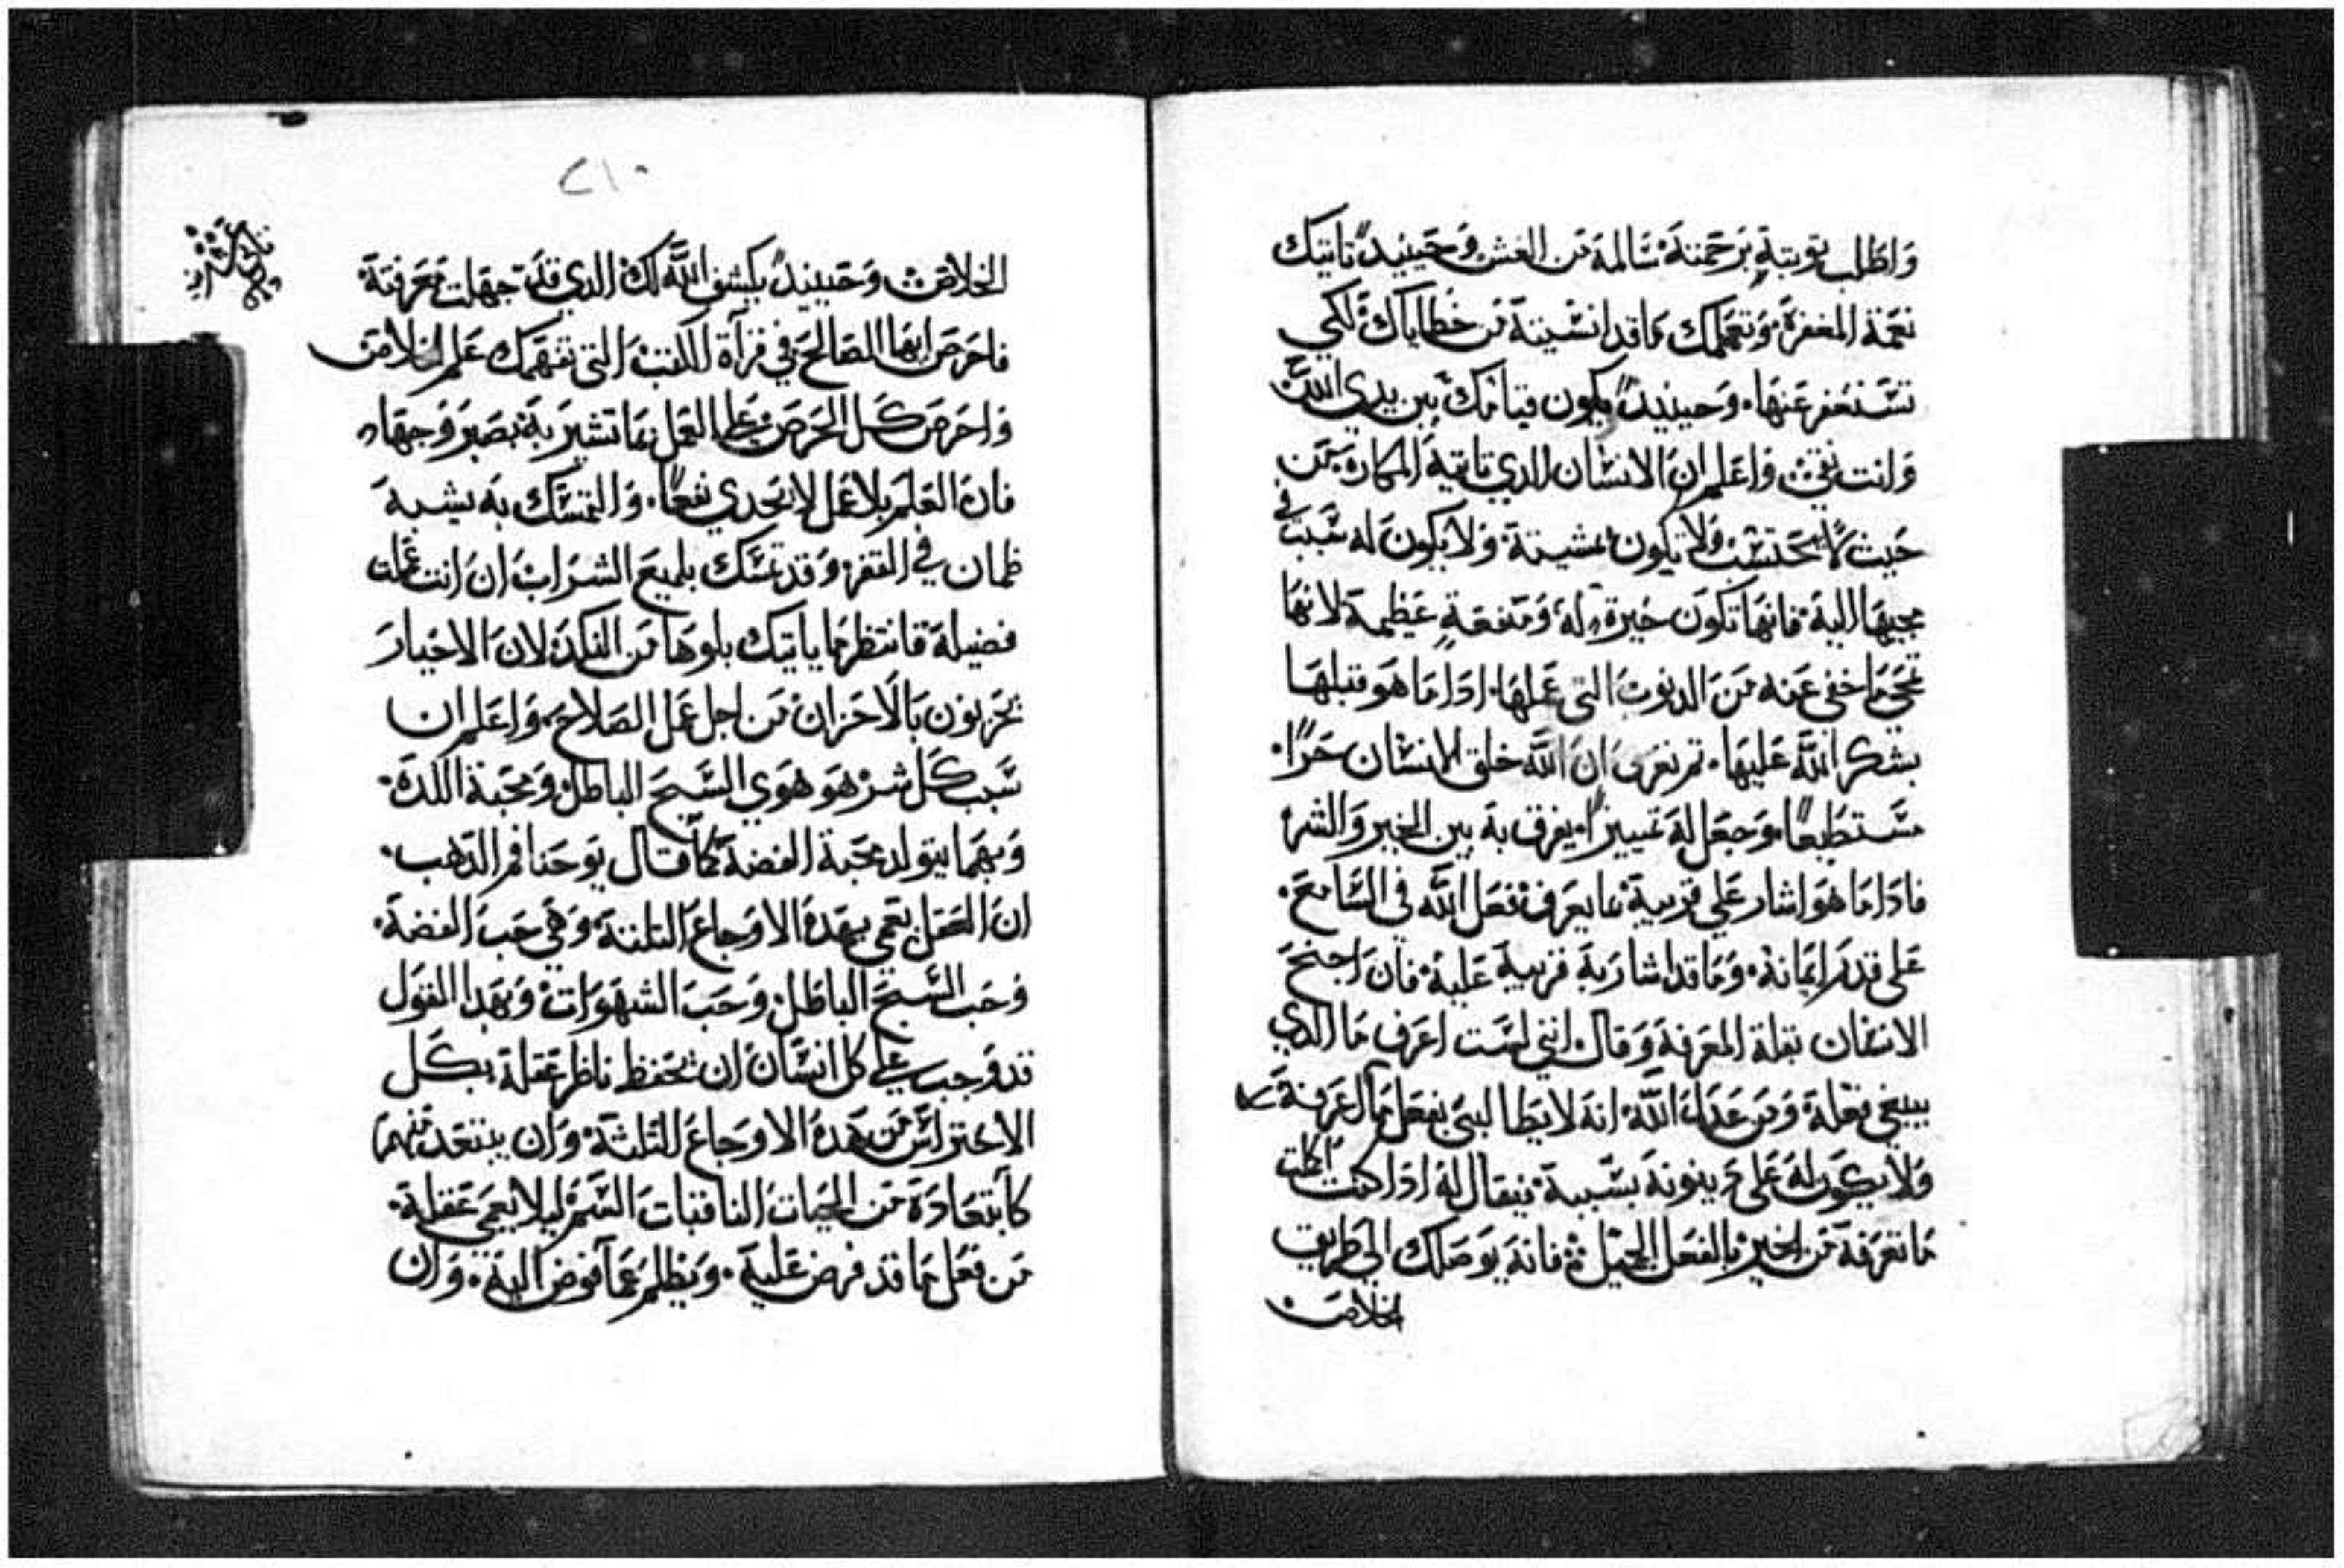 واطلب توبته برحمته سالمة من الغش وحينيد تاتيك
نعمة المغفرة وتعلمك ماقد انسيته من خطاياك لكي
تستغفر عنها. وحينيد يكون قيامك بين يدي الله
وانت نقي واعلم ان الانسان الدي تاتيه المكاره من
حيث لا يحتسب ولا يكون بمشيته ولا يكون له سبب في
مجيها اليه فانها تكون خيرة له ومنفعة عظيمة لانها
تمحي ماخفي عنه من الدنوب التي عملها. ادا ما هو قبلها
بشكر الله عليها. تم نعرف ان الله خلق الانسان حرا.
مستطيعا وجعل له تمييزا يعرف به بين الخير والشر
فادا ما هو اشار علي قريبه بما يعرف فعل الله في السامع.
علي قدر ايمانه. وما قد اشار به قريبه عليه فان احتج
الانسان بقلة المعرفة وقال انني لست اعرف ما الدي
ينبغي نعمله ومن عدل الله انه لا يطالبني بفعل مالا عرفته
ولا يكون له علي دينونة بسببه فيقال له ادا كنت اكملت
ماتعرفه من الخير بالفعل الجميل فانه يوصلك الي طريق
الخلاص
٢١٠
الخلاص وحينيد يكشف الله لك الدي قد جهلت معرفته
فاحرص ايها الصالح في قرآة الكتب التي تفهمك علم الخلاص
واحرص كل الحرص علي العمل بما تشير به بصبر وجهاد
فان العلم بلا عمل لا يجدي نفعا. والتمسك به يشبه
ظمان في القفر وقد تمسك بلميع الشراب ان انت عملت
فضيلة فانتظر ما ياتيك بلوها من النكد لان الاخيار
يجربون بالاحزان من اجل عمل الصلاح واعلم ان
سبب كل شر هو هوي السبح الباطل ومحبة اللدة.
وبهما يتولد محبة الفضة كما قال يوحنا فم الدهب.
ان العقل يعمي بهده الاوجاع التلتة وهي حب الفضة.
وحب السبح الباطل وحب الشهوات وبهدا القول
قد وجب علي كل انسان ان يحفظ ناظر عقله بكل
الاحتراس من هده الاوجاع التلتة وان يبتعد منهم
كابتعاده من الحيات النافتات السم ليلا يعمي عقله.
من فعل ما قد فرض عليه. ويظلم عما فوض اليه. وان